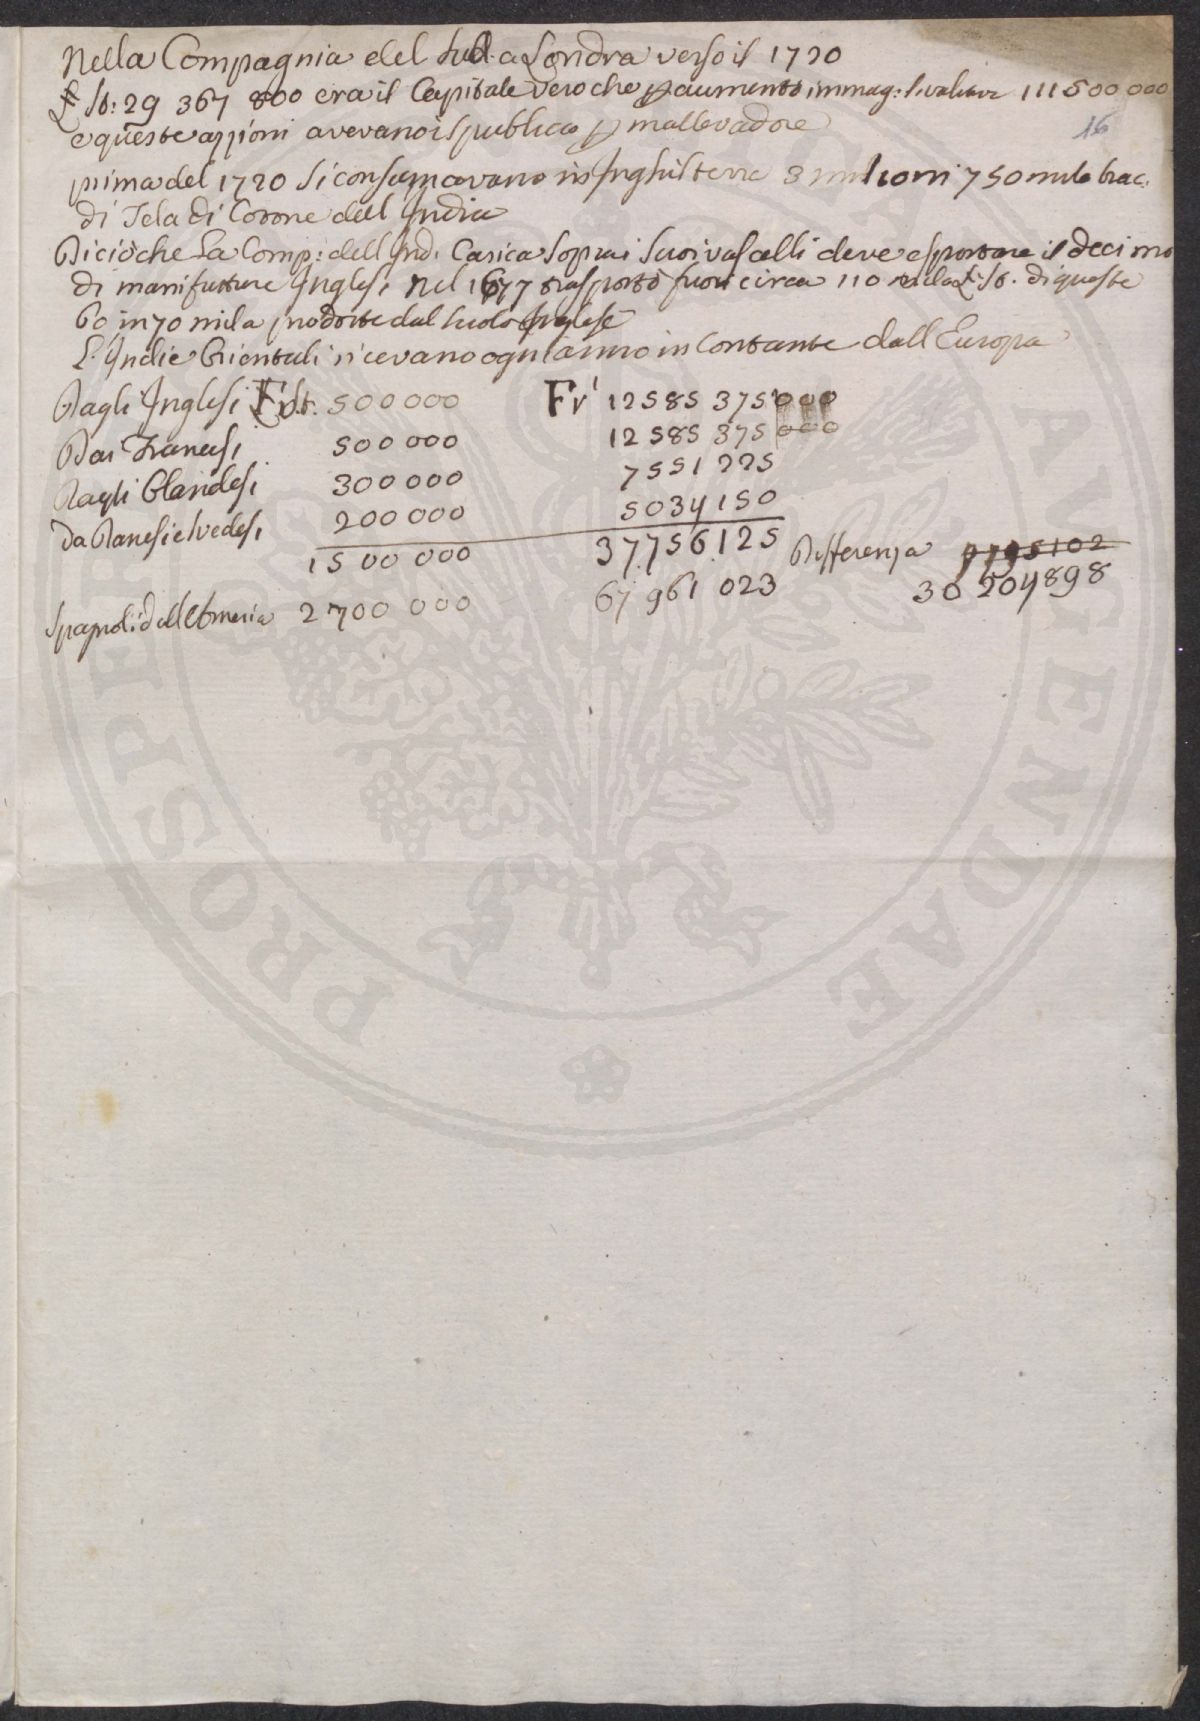 Nella Compagnia del Sud a Londra verso il 1720
L. St: 29 367 800 era il Capitale vero che p aumento immag: si valutava 111500000
e queste azzioni avevano il publico p mallevadore
16
prima del 1720 si consumavano in Inghilterra 3 milioni 750 mila brac.
di Tela di Cotone dell India
Di ciò che la Comp: dell Ind. Carica sopra i suoi vascelli deve esportare il decimo
di manifatture Inglesi nel 1677 trasportò fuori circa 110 mila L. St. di queste
60 in 70 mila prodotte dal suolo Inglese
L'Indie Orientali ricevano ogni anno in Contante dall Europa
Dagli Inglesi L. St. 500000 Fr 12585 375 000
Dai Francesi 500 000 12 585 375 000
Dagli Olandesi 300 000 7551 225
Da Danesi e Svedesi 200 000 5034150
1500 000 37.756.125 Differenza 30 204898
Spagnoli dell America 2 700 000 67 961 023
PROSPE AVGENDAE